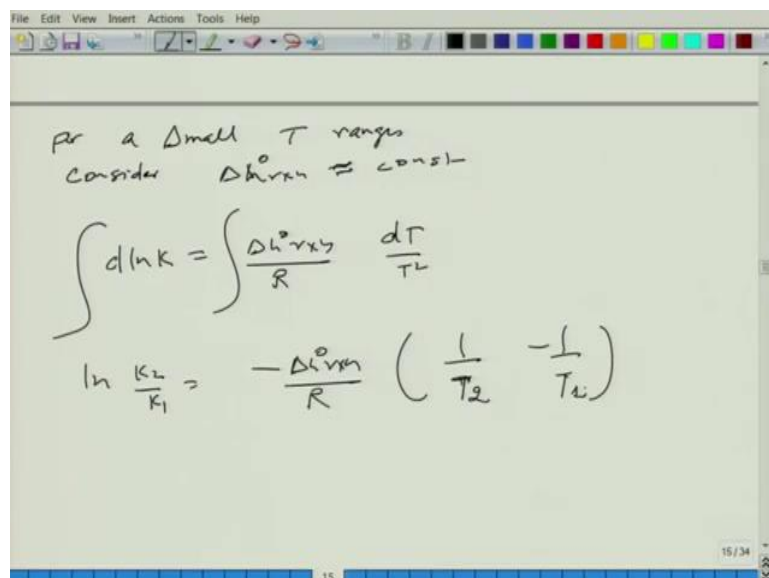 File Edit View Insert Actions Tools Help
for a small T ranges
consider Δh°rxn ≈ const
∫ d ln K = ∫ Δh°rxn / R dT / T²
ln K2/K1 = - Δh°rxn / R ( 1/T2 - 1/T1 )
15/34
15